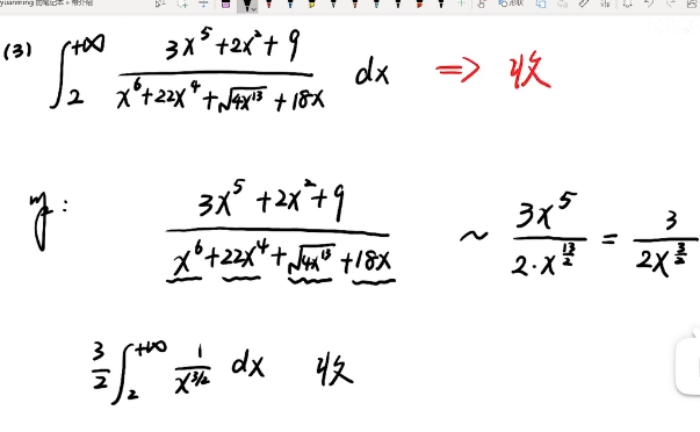 (3) ∫₂^{+∞} (3x⁵+2x²+9)/(x⁶+22x⁴+√(4x¹³)+18x) dx ⇒ 收
解: (3x⁵+2x²+9)/(x⁶+22x⁴+√(4x¹³)+18x) ~ 3x⁵/(2·x^{13/2}) = 3/(2x^{3/2})
3/2 ∫₂^{+∞} 1/x^{3/2} dx 收